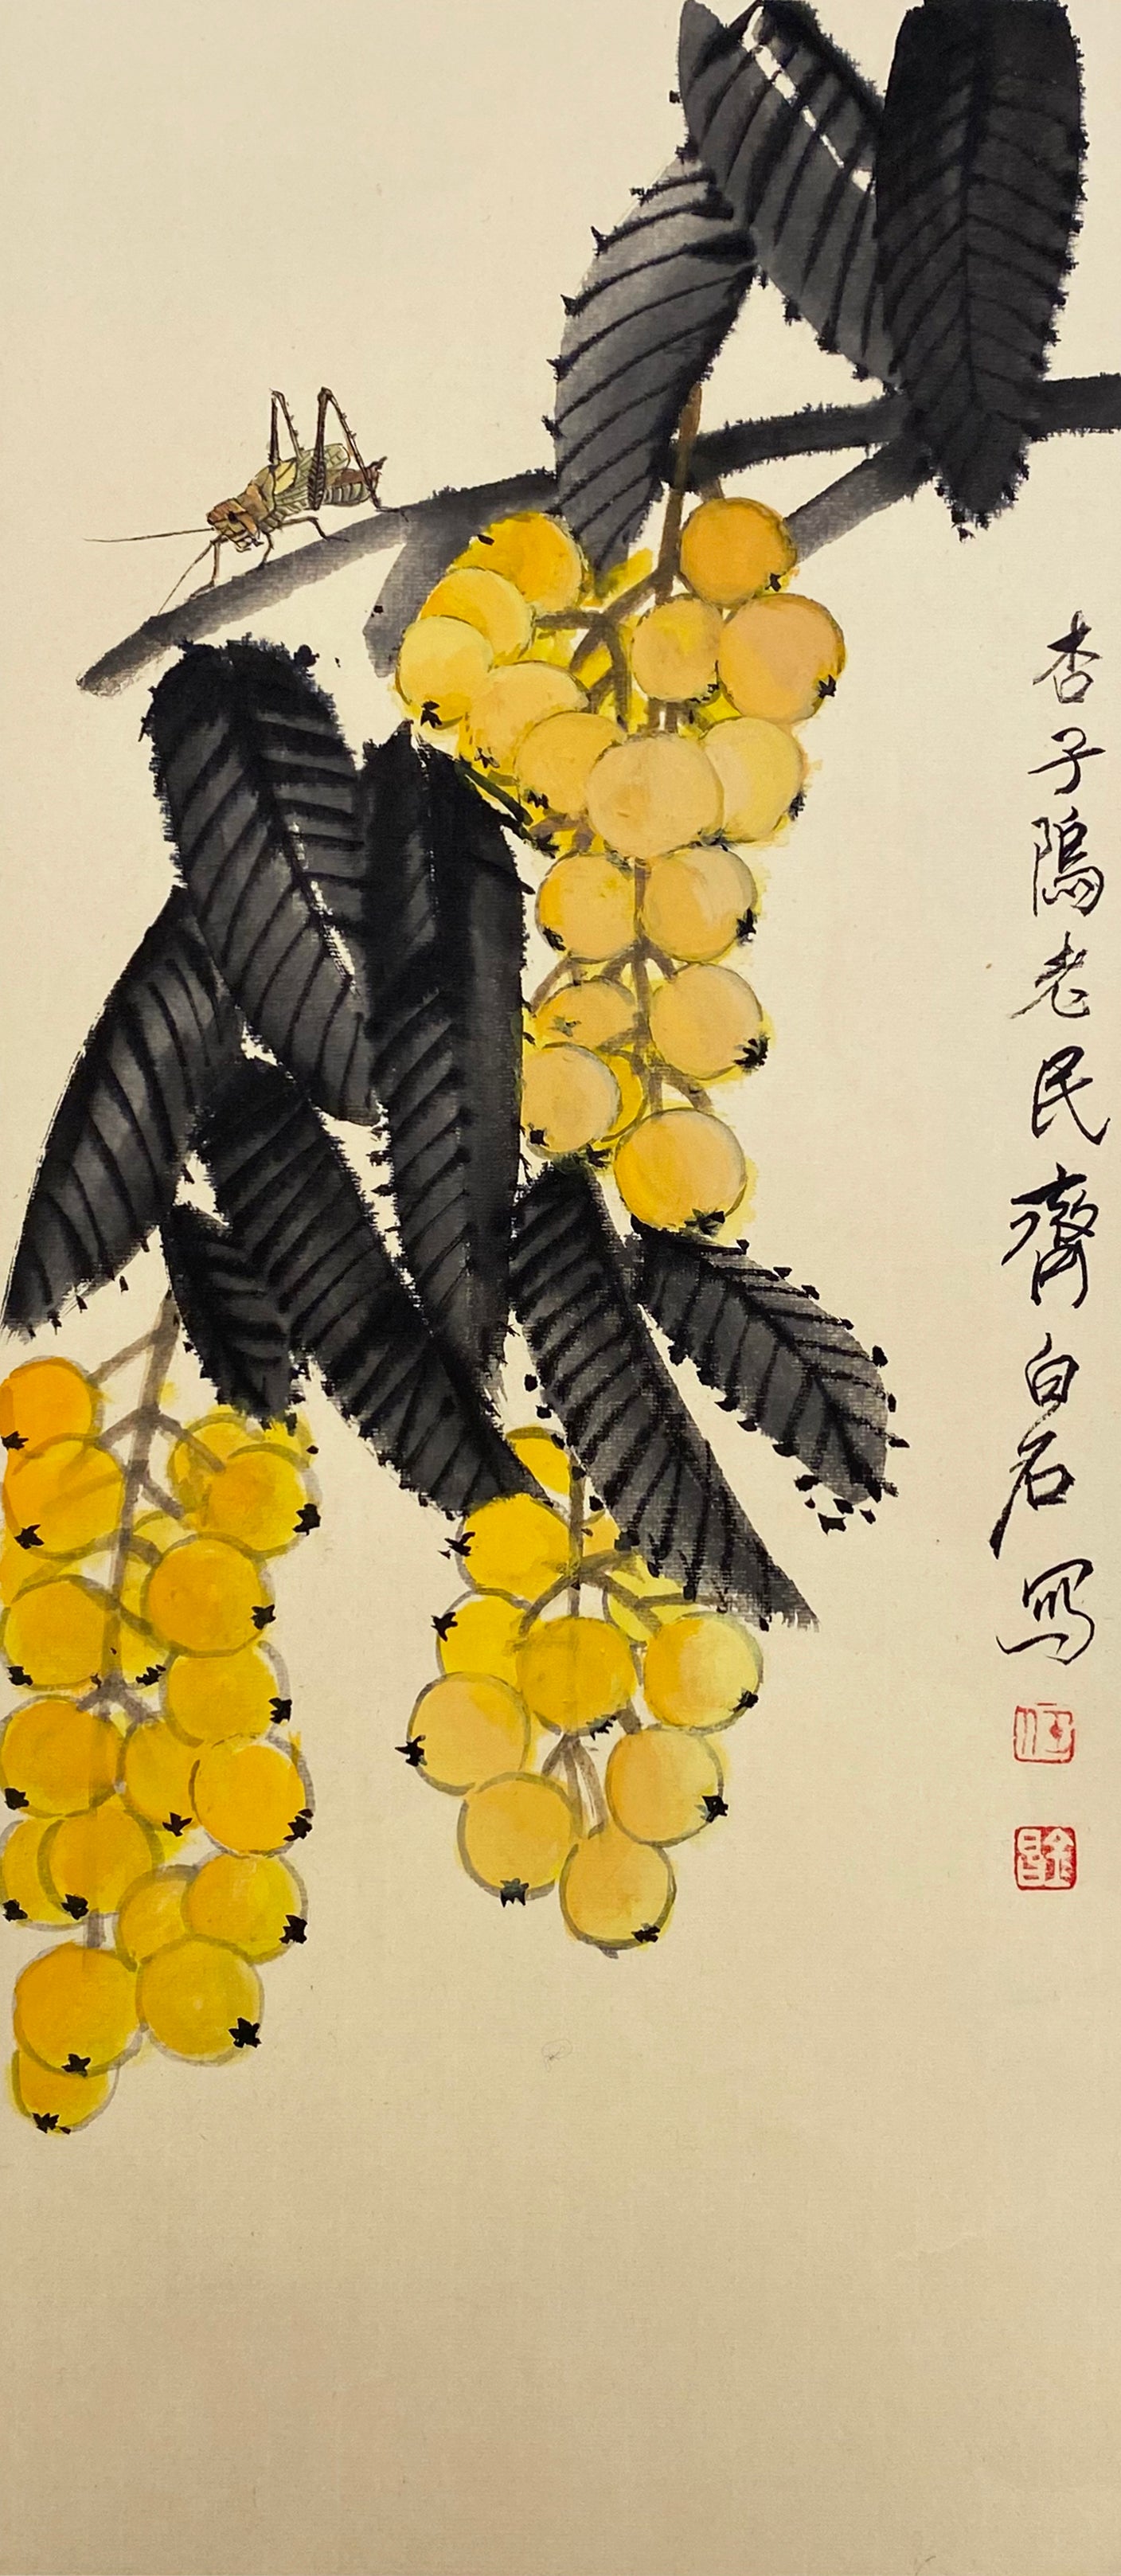 杏子隖老民齊白石寫